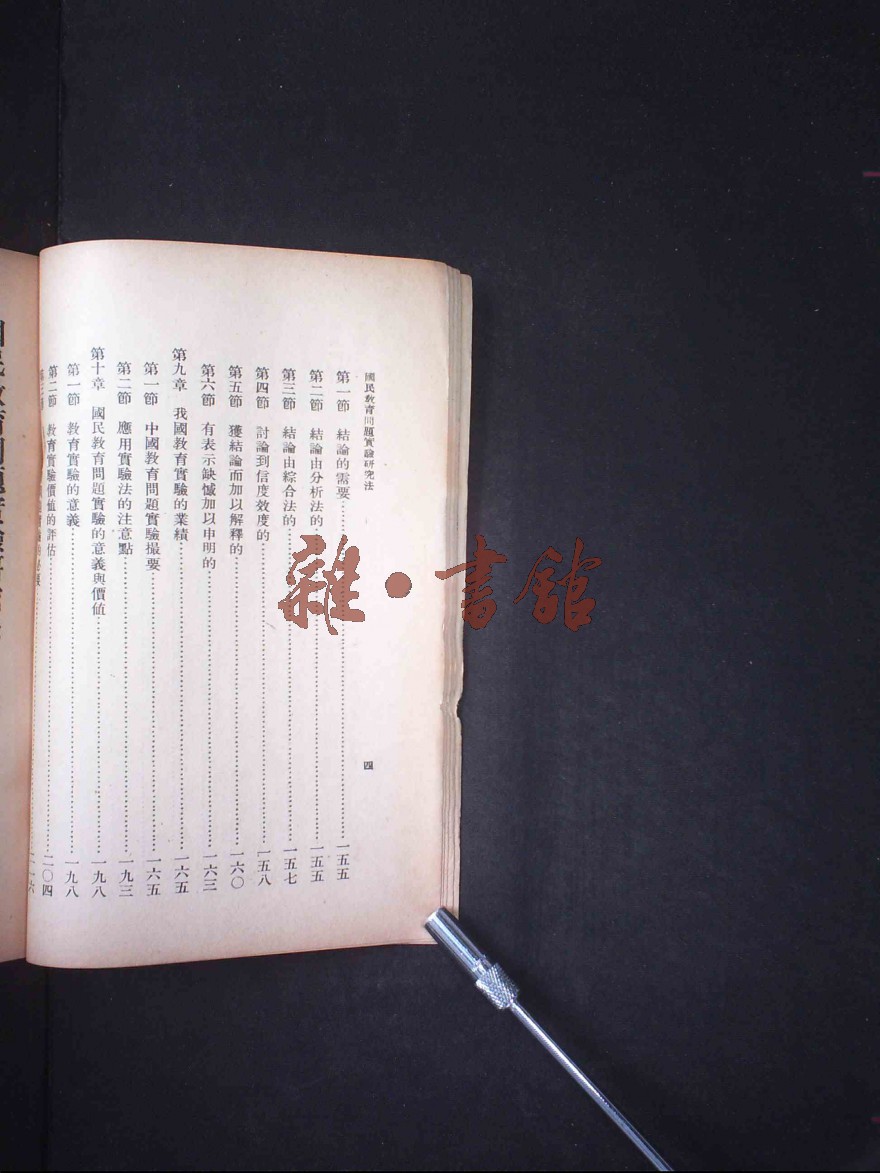 國民教育問題實驗研究法
四
第一節 結論的需要…………一五五
第二節 結論由分析法的…………一五五
第三節 結論由綜合法的…………一五七
第四節 討論到信度效度的…………一五八
第五節 獲結論而加以解釋的…………一六〇
第六節 有表示缺憾加以申明的…………一六三
第九章 我國教育實驗的業績…………一六五
第一節 中國教育問題實驗撮要…………一六五
第二節 應用實驗法的注意點…………一九三
第十章 國民教育問題實驗的意義與價值…………一九八
第一節 教育實驗的意義…………一九八
第二節 教育實驗價值的評估…………二〇四
雜·書館